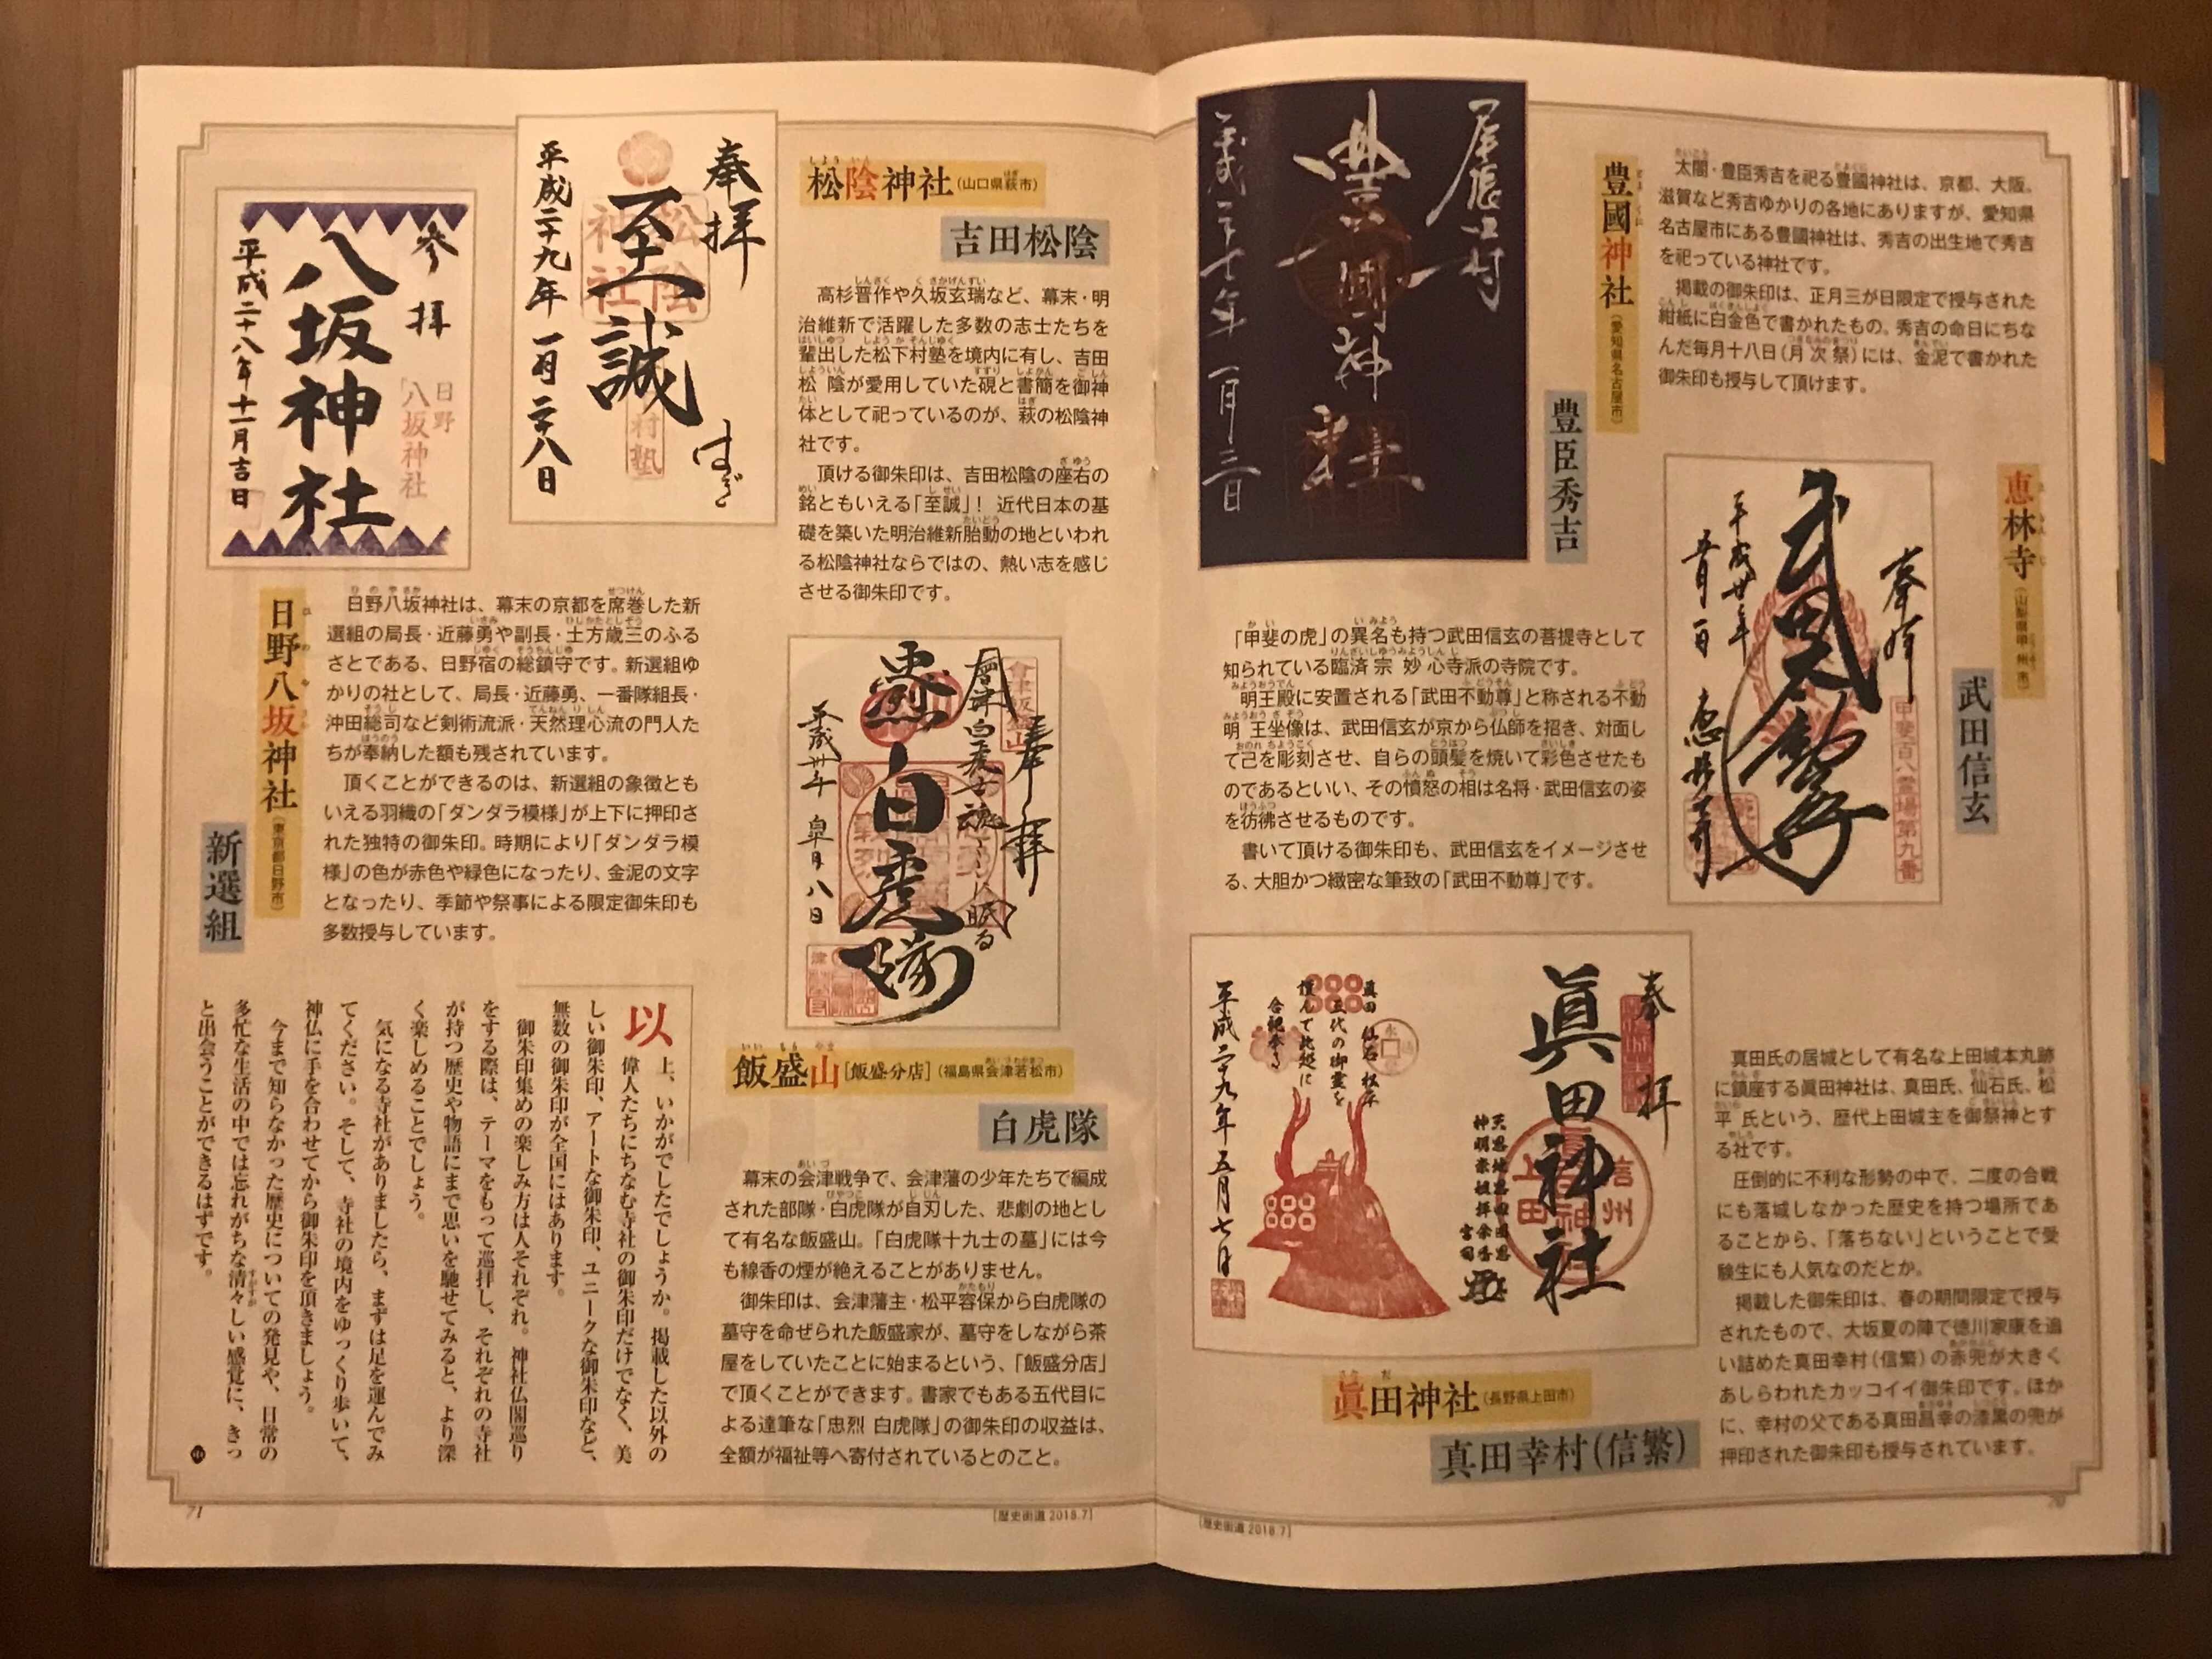 太閤・豊臣秀吉を祀る豊國神社は、京都、大阪、
滋賀など秀吉ゆかりの各地にありますが、愛知県
名古屋市にある豊國神社は、秀吉の出生地で秀吉
を祀っている神社です。
掲載の御朱印は、正月三が日限定で授与された
紺紙に白金色で書かれたもの。秀吉の命日にちな
んだ毎月十八日(月次祭)には、金泥で書かれた
御朱印も授与して頂けます。
豊國神社(愛知県名古屋市)
豊臣秀吉
豊國神社
恵林寺(山梨県甲州市)
武田信玄
奉拝
甲斐百八霊場第九番
「甲斐の虎」の異名も持つ武田信玄の菩提寺として
知られている臨済宗妙心寺派の寺院です。
明王殿に安置される「武田不動尊」と称される不動
明王坐像は、武田信玄が京から仏師を招き、対面し
て己を彫刻させ、自らの頭髪を焼いて彩色させたも
のであるといい、その憤怒の相は名将・武田信玄の姿
を彷彿させるものです。
書いて頂ける御朱印も、武田信玄をイメージさせ
る、大胆かつ緻密な筆致の「武田不動尊」です。
奉拝
眞田神社
平成二十九年五月七日
眞田神社(長野県上田市)
真田幸村(信繁)
真田氏の居城として有名な上田城本丸跡
に鎮座する眞田神社は、真田氏、仙石氏、松
平氏という、歴代上田城主を御祭神とす
る社です。
圧倒的に不利な形勢の中で、二度の合戦
にも落城しなかった歴史を持つ場所であ
ることから、「落ちない」ということで受
験生にも人気なのだとか。
掲載した御朱印は、春の期間限定で授与
されたもので、大坂夏の陣で徳川家康を追
い詰めた真田幸村(信繁)の赤兜が大きく
あしらわれたカッコイイ御朱印です。ほか
に、幸村の父である真田昌幸の漆黒の兜が
押印された御朱印も授与されています。
[歴史街道 2018.7]
70
松陰神社(山口県萩市)
吉田松陰
高杉晋作や久坂玄瑞など、幕末・明
治維新で活躍した多数の志士たちを
輩出した松下村塾を境内に有し、吉田
松陰が愛用していた硯と書簡を御神
体として祀っているのが、萩の松陰神
社です。
頂ける御朱印は、吉田松陰の座右の
銘ともいえる「至誠」! 近代日本の基
礎を築いた明治維新胎動の地といわれ
る松陰神社ならではの、熱い志を感じ
させる御朱印です。
奉拝
至誠
松陰神社
平成二十九年一月二十八日
はぎ
参拝
日野
八坂神社
八坂神社
平成二十八年十一月吉日
日野八坂神社(東京都日野市)
新選組
日野八坂神社は、幕末の京都を席巻した新
選組の局長・近藤勇や副長・土方歳三のふる
さとである、日野宿の総鎮守です。新選組ゆ
かりの社として、局長・近藤勇、一番隊組長・
沖田総司など剣術流派・天然理心流の門人た
ちが奉納した額も残されています。
頂くことができるのは、新選組の象徴とも
いえる羽織の「ダンダラ模様」が上下に押印さ
れた独特の御朱印。時期により「ダンダラ模
様」の色が赤色や緑色になったり、金泥の文字
となったり、季節や祭事による限定御朱印も
多数授与しています。
奉拝
白虎隊
飯盛山[飯盛分店](福島県会津若松市)
白虎隊
幕末の会津戦争で、会津藩の少年たちで編成
された部隊・白虎隊が自刃した、悲劇の地とし
て有名な飯盛山。「白虎隊十九士の墓」には今
も線香の煙が絶えることがありません。
御朱印は、会津藩主・松平容保から白虎隊の
墓守を命ぜられた飯盛家が、墓守をしながら茶
屋をしていたことに始まるという、「飯盛分店」
で頂くことができます。書家でもある五代目に
よる達筆な「忠烈 白虎隊」の御朱印の収益は、
全額が福祉等へ寄付されているとのこと。
以上、いかがでしたでしょうか。掲載した以外の
偉人たちにちなむ寺社の御朱印だけでなく、美
しい御朱印、アートな御朱印、ユニークな御朱印など、
無数の御朱印が全国にはあります。
御朱印集めの楽しみ方は人それぞれ。神社仏閣巡り
をする際は、テーマをもって巡拝し、それぞれの寺社
が持つ歴史や物語にまで思いを馳せてみると、より深
く楽しめることでしょう。
気になる寺社がありましたら、まずは足を運んでみ
てください。そして、寺社の境内をゆっくり歩いて、
神仏に手を合わせてから御朱印を頂きましょう。
今まで知らなかった歴史についての発見や、日常の
多忙な生活の中では忘れがちな清々しい感覚に、きっ
と出会うことができるはずです。
71
[歴史街道 2018.7]